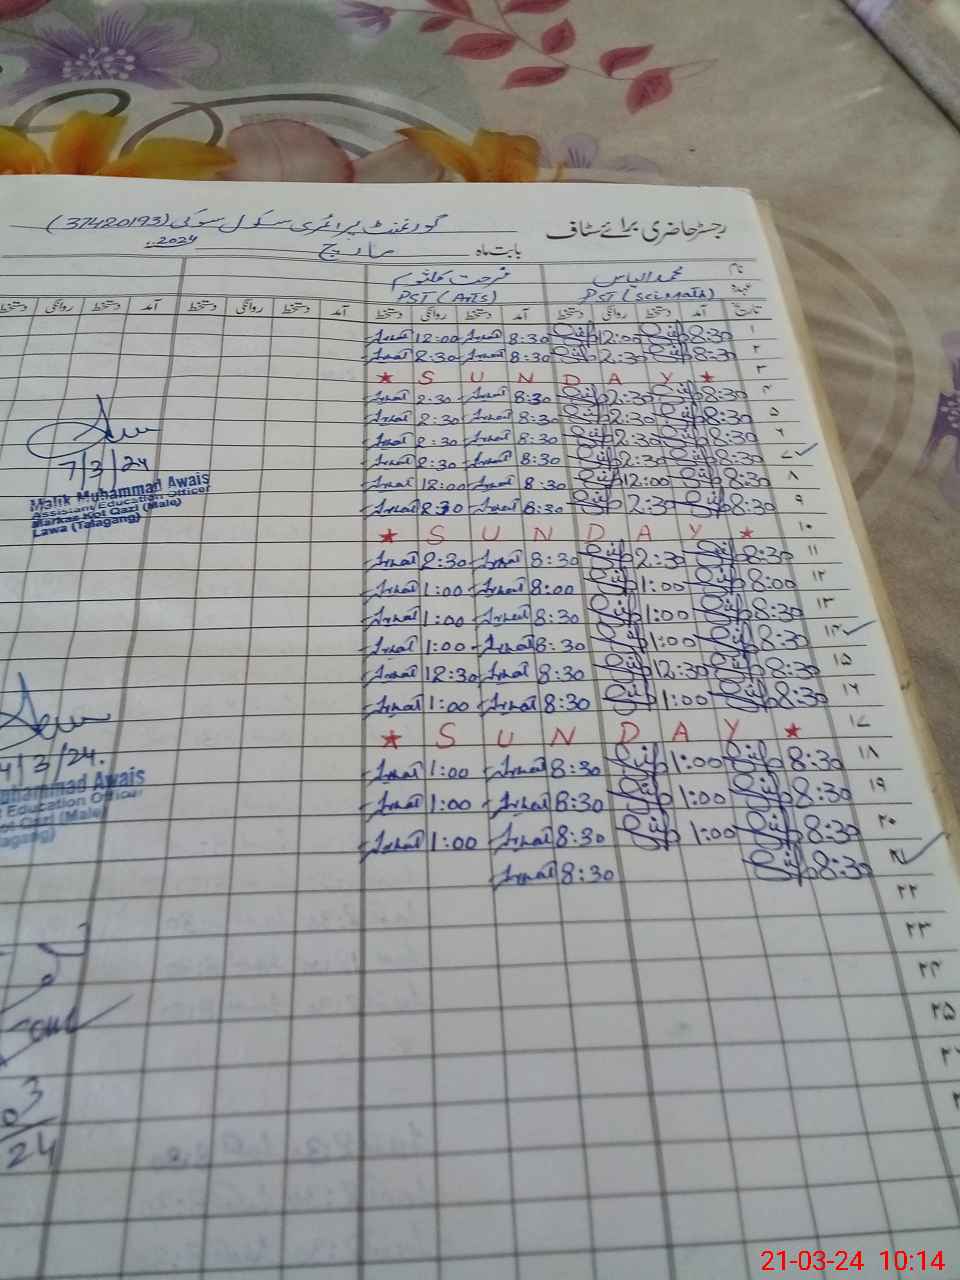 رجسٹر حاضری برائے سٹاف
گورنمنٹ پرائمری سکول سوکی (37420193)
بابت ماہ مارچ 2024
نام محمد الیاس فرحت کلثوم
عہدہ PST (Sci-math) PST (Arts)
تاریخ آمد دستخط روانگی دستخط آمد دستخط روانگی دستخط آمد دستخط روانگی دستخط آمد دستخط روانگی دستخط
۱ 8:30 12:00 8:30 12:00
۲ 8:30 2:30 8:30 2:30
۳ ★ S U N D A Y ★
۴ 8:30 2:30 8:30 2:30
۵ 8:30 2:30 8:30 2:30
۶ 8:30 2:30 8:30 2:30
۷ 8:30 2:30 8:30 2:30
۸ 8:30 12:00 8:30 12:00
۹ 8:30 2:30 8:30 2:30
۱۰ ★ S U N D A Y ★
۱۱ 8:30 2:30 8:30 2:30
۱۲ 8:00 1:00 8:00 1:00
۱۳ 8:30 1:00 8:30 1:00
۱۴ 8:30 1:00 8:30 1:00
۱۵ 8:30 12:30 8:30 12:30
۱۶ 8:30 1:00 8:30 1:00
۱۷ ★ S U N D A Y ★
۱۸ 8:30 1:00 8:30 1:00
۱۹ 8:30 1:00 8:30 1:00
۲۰ 8:30 1:00 8:30 1:00
۲۱ 8:30 8:30
۲۲
۲۳
۲۴
۲۵
7/3/24
Malik Muhammad Awais
Assistant Education Officer
Markaz Kot Qazi (Male)
Lawa (Talagang)
4/3/24.
uhammad Awais
Education Officer
ot Qazi (Male)
alagang)
03
24
21-03-24 10:14